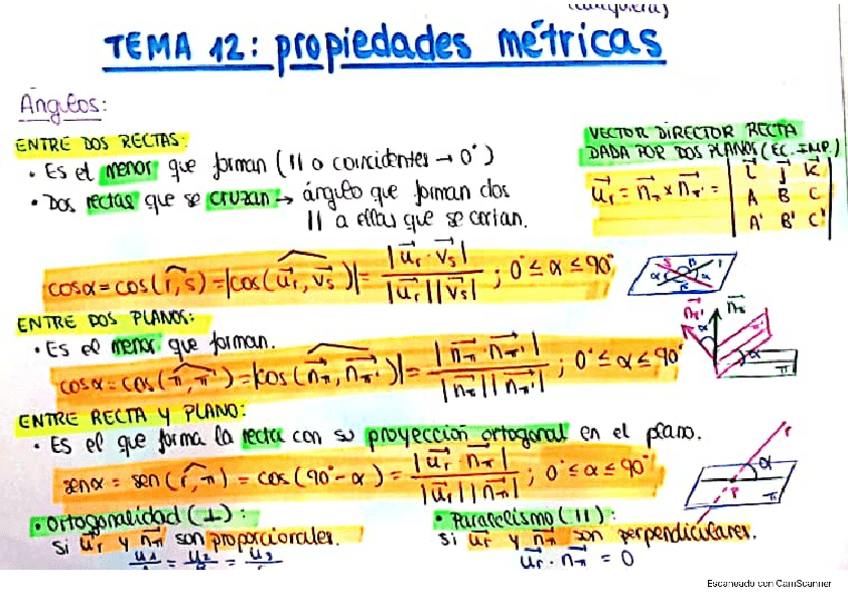 TEMA 12: propiedades métricas
Ángulos:
ENTRE DOS RECTAS:
· Es el menor que forman (|| o coincidentes → 0°)
· Dos rectas que se cruzan → ángulo que forman dos
|| a ellas que se cortan.
VECTOR DIRECTOR RECTA
DADA POR DOS PLANOS (EC. IMP.)
u⃗r = n⃗π × n⃗π' = | i⃗ j⃗ k⃗ |
A B C
A' B' C'
cosα = cos(r,s) = |cos(u⃗r, v⃗s)| = |u⃗r · v⃗s| / |u⃗r| |v⃗s| ; 0° ≤ α ≤ 90°
ENTRE DOS PLANOS:
· Es el menor que forman.
cosα = cos(π, π') = |cos(n⃗π, n⃗π')| = |n⃗π · n⃗π'| / |n⃗π| |n⃗π'| ; 0° ≤ α ≤ 90°
ENTRE RECTA Y PLANO:
· Es el que forma la recta con su proyección ortogonal en el plano.
senα = sen(r, π) = cos(90° - α) = |u⃗r · n⃗π| / |u⃗r| |n⃗π| ; 0° ≤ α ≤ 90°
· Ortogonalidad (⊥):
si u⃗r y n⃗π son proporcionales.
u1/A = u2/B = u3/C
· Paralelismo (||):
si u⃗r y n⃗π son perpendiculares.
u⃗r · n⃗π = 0
Escaneado con CamScanner